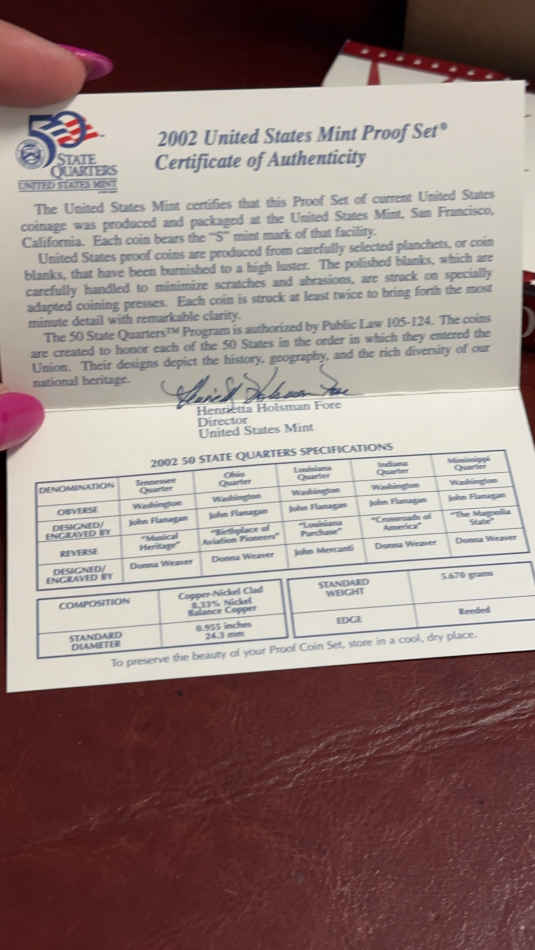 50
STATE
QUARTERS
UNITED STATES MINT
2002 United States Mint Proof Set®
Certificate of Authenticity
The United States Mint certifies that this Proof Set of current United States
coinage was produced and packaged at the United States Mint, San Francisco,
California. Each coin bears the "S" mint mark of that facility.
United States proof coins are produced from carefully selected planchets, or coin
blanks, that have been burnished to a high luster. The polished blanks, which are
carefully handled to minimize scratches and abrasions, are struck on specially
adapted coining presses. Each coin is struck at least twice to bring forth the most
minute detail with remarkable clarity.
The 50 State Quarters™ Program is authorized by Public Law 105-124. The coins
are created to honor each of the 50 States in the order in which they entered the
Union. Their designs depict the history, geography, and the rich diversity of our
national heritage.
Henrietta Holsman Fore
Henrietta Holsman Fore
Director
United States Mint
2002 50 STATE QUARTERS SPECIFICATIONS
DENOMINATION Tennessee Quarter Ohio Quarter Louisiana Quarter Indiana Quarter Mississippi Quarter
OBVERSE Washington Washington Washington Washington Washington
DESIGNED/ ENGRAVED BY John Flanagan John Flanagan John Flanagan John Flanagan John Flanagan
REVERSE "Musical Heritage" "Birthplace of Aviation Pioneers" "Louisiana Purchase" "Crossroads of America" "The Magnolia State"
DESIGNED/ ENGRAVED BY Donna Weaver Donna Weaver John Mercanti Donna Weaver Donna Weaver
COMPOSITION Copper-Nickel Clad 8.33% Nickel Balance Copper
STANDARD DIAMETER 0.955 inches 24.3 mm
STANDARD WEIGHT 5.670 grams
EDGE Reeded
To preserve the beauty of your Proof Coin Set, store in a cool, dry place.